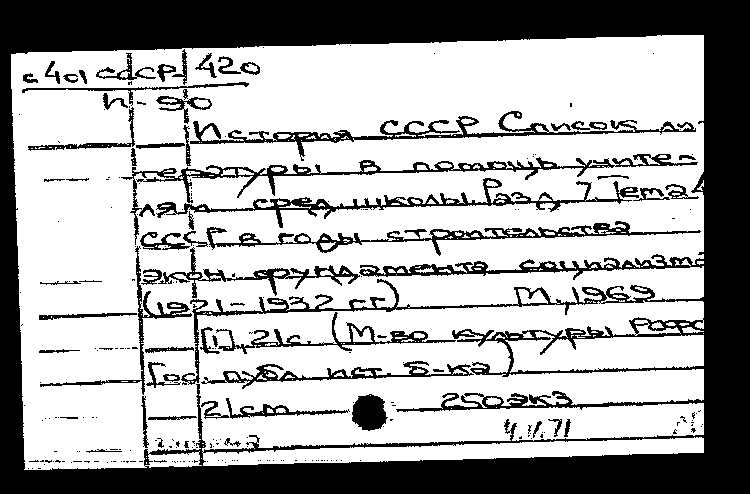 с401 СССР 420
И-90
История СССР Список ли-
тературы в помощь учител
лям сред. школы. Разд. 7. Тема 4
СССР в годы строительства
экон. фундамента социализма
(1921-1932 гг). М., 1969
[1], 21с. (М-во культуры РСФС
Гос. публ. ист. б-ка)
21см 250экз